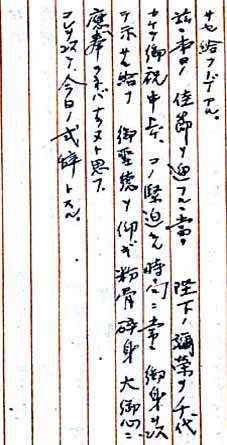 サセ給フノデアル。
茲ニ本日ノ佳節ヲ迎フルニ當リ 陛下ノ彌榮ヲ千代
ニ 御祝申上ゲ コノ緊迫セル時局ニ當リ御身ヲ以
テ示サセ給フ 御聖徳ヲ仰ギ粉骨碎身大御心ニ
應ヘ奉ラネバナラヌト思フ
コレヲ以テ今日ノ式辭トスル。